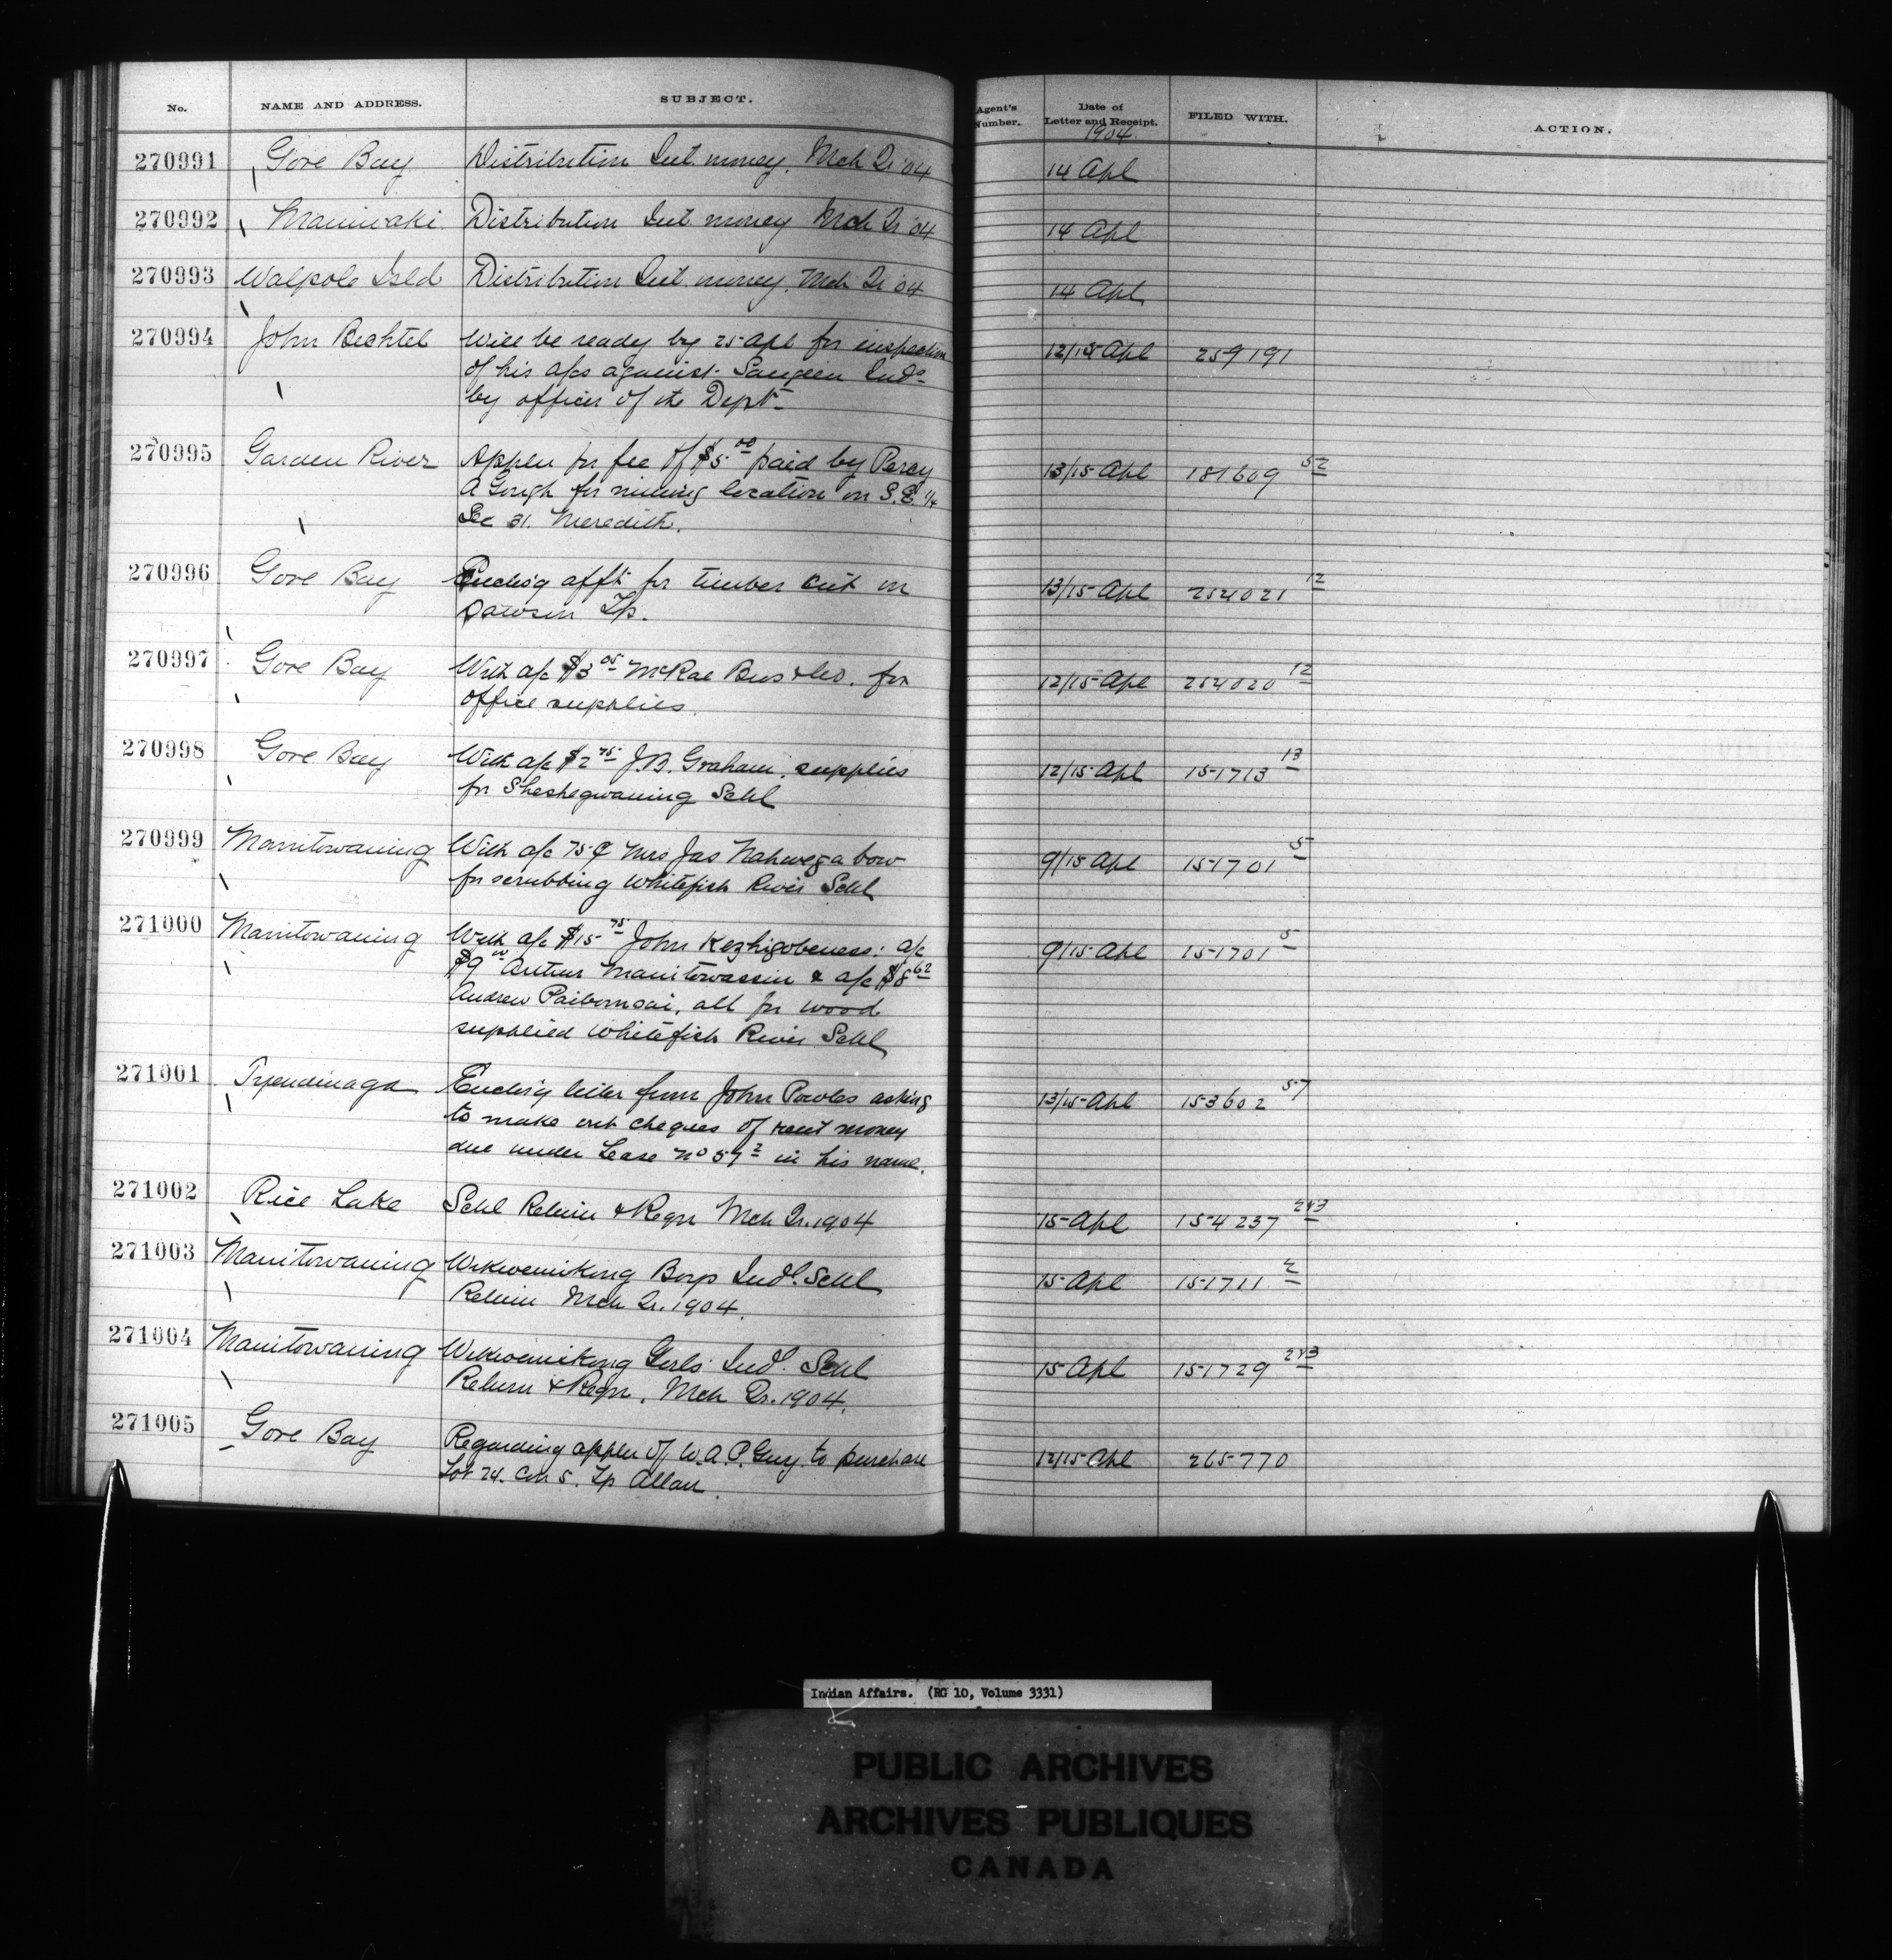 No. NAME AND ADDRESS. SUBJECT. Agent's Number. Date of Letter and Receipt. FILED WITH. ACTION.
1904
270991 Gore Bay Distribution Int money. Mch Qr '04 14 Apl
270992 Maniwaki Distribution Int money Mch Qr '04 14 Apl
270993 Walpole Isld Distribution Int. money. Mch Qr 04 14 Apl
270994 John Bechtel Will be ready by 25 Apl for inspection 12/15 Apl 259191
of his a/cs against Saugeen Inds
by officer of the Dept.
270995 Garden River Applcn for fee of $5.00 paid by Percy 13/15 Apl 181609 52
A Gough for mining location on S.E. 1/4
Sec 31. Meredith.
270996 Gore Bay Enclos'g afft for timber cut in 13/15 Apl 254021 12
Dawson Tp.
270997 Gore Bay With a/c $3 05 McRae Bros & Co. for 12/15 Apl 254020 12
office supplies.
270998 Gore Bay With a/c $2 75 J.B. Graham. supplies 12/15 Apl 151713 13
for Sheshegwaning Schl
270999 Manitowaning With a/c 75¢ Mrs Jas Nahwegabow 9/15 Apl 151701 5
for scrubbing Whitefish River Schl
271000 Manitowaning With a/c $15 75 John Kezhigobeness: a/c 9/15 Apl 151701 5
$9 00 Arthur Manitowassin & a/c $8 62
Andrew Paibomsai, all for wood
supplied Whitefish River Schl
271001 Tyendinaga Enclos'g letter from John Powles asking 13/15 Apl 153602 57
to make out cheques of rent money
due under Lease No 57 2 in his name.
271002 Rice Lake Schl Return & Reqn Mch Qr. 1904 15 Apl 154237 2&3
271003 Manitowaning Wikwemikong Boys Indl. Schl 15 Apl 151711 2
Return Mch Qr. 1904.
271004 Manitowaning Wikwemikong Girls Indl. Schl 15 Apl 151729 2&3
Return & Reqn. Mch Qr. 1904.
271005 Gore Bay Regarding applcn of W.A.P. Guy to purchase 12/15 Apl 265770
Lot 24. Con 5. Tp Allan.
Indian Affairs. (RG 10, Volume 3331)
PUBLIC ARCHIVES
ARCHIVES PUBLIQUES
CANADA